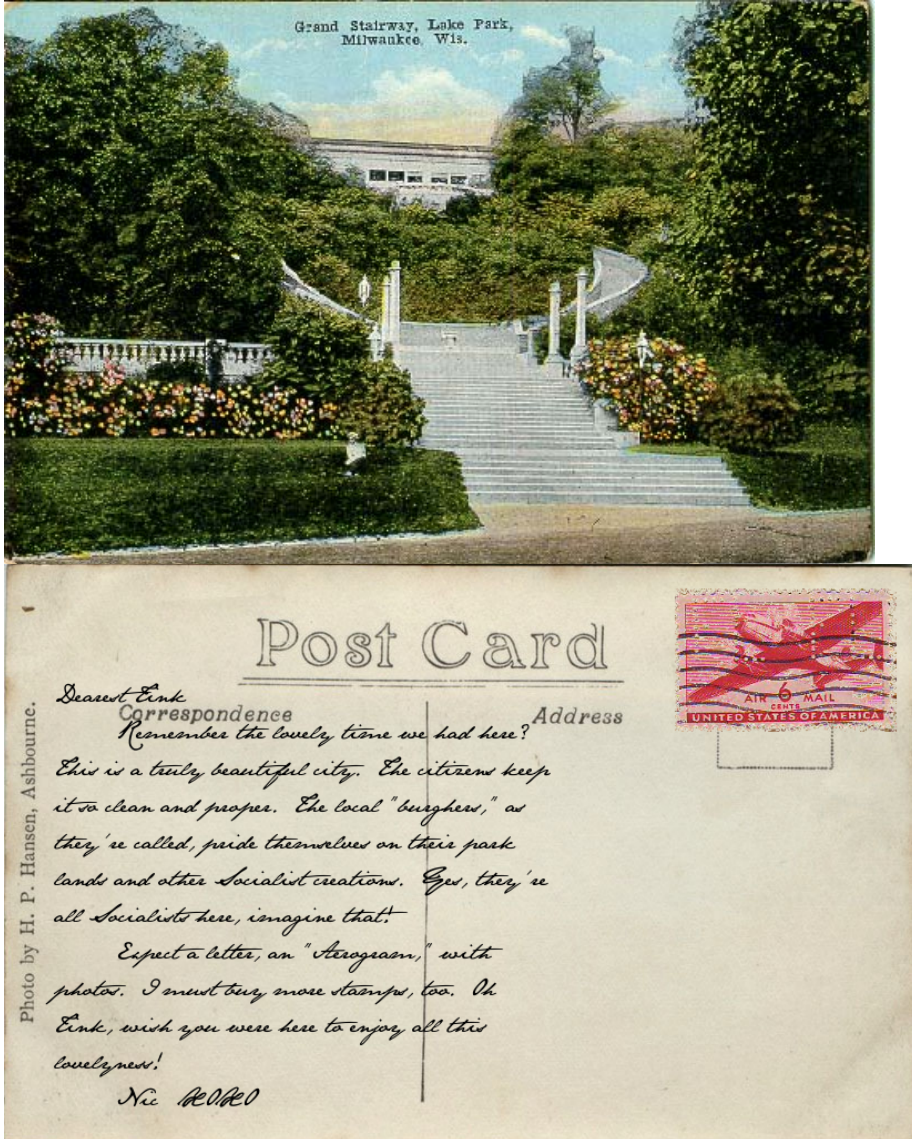 Grand Stairway, Lake Park,
Milwaukee, Wis.
Post Card
AIR 6 MAIL
CENTS
UNITED STATES OF AMERICA
Correspondence
Address
Photo by H. P. Hansen, Ashbourne.
Dearest Tink
Remember the lovely time we had here?
This is a truly beautiful city. The citizens keep
it so clean and proper. The local "burghers," as
they're called, pride themselves on their park
lands and other Socialist creations. Yes, they're
all Socialists here, imagine that!
Expect a letter, an "Aerogram," with
photos. I must buy more stamps, too. Oh
Tink, wish you were here to enjoy all this
lovelyness!
Nic XOXO